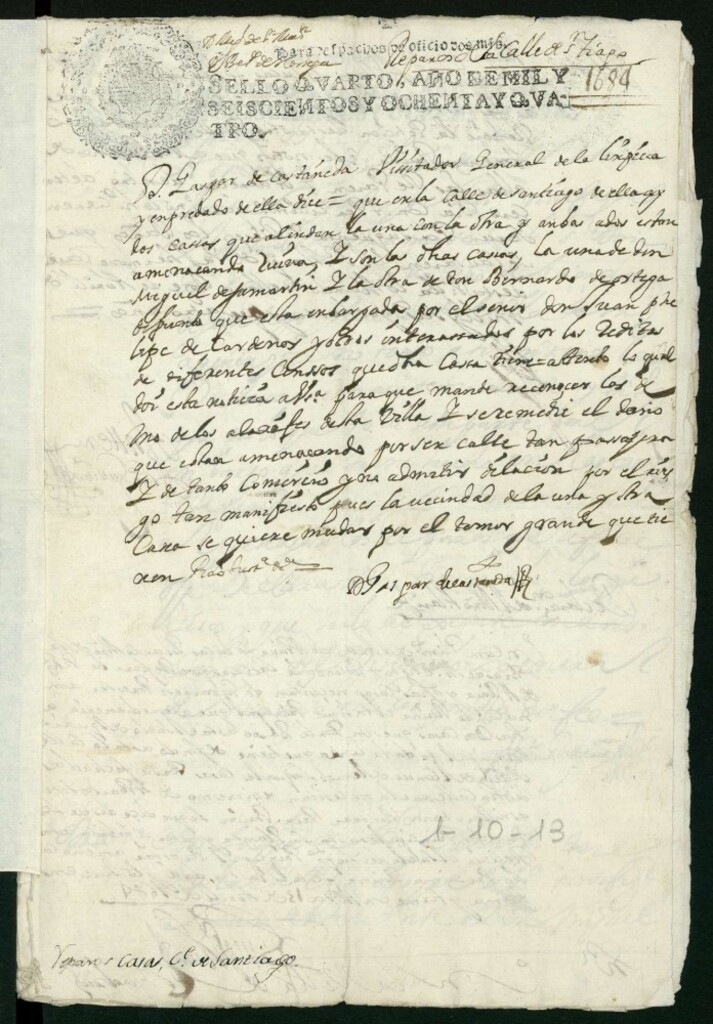 D. Mig.l de S.n Mar.n
D. Ber.do de Hortega
Reparos de la Calle de S.n Tiago
para despachos de oficio dos mrs.
1684
SELLO QVARTO, AÑO DE MIL Y
SEISCIENTOS Y OCHENTA Y QVA-
TRO.
D. Gaspar de castañeda Vissitador General de la limpieça
y enpedrado de ella dice = que en la Calle de santiago de ella ay
dos cassas que alindan la una con la otra y anbas a dos estan
amenaçando Ruina, Y son las dhas casas, la una de don
Miguel de sanmartin Y la otra de don Bernardo de ortega
difunto que esta enbargada por el senor don Juan phe
lipe de Cardenos y otros interessados por los Reditos
de diferentes Censsos que dha Cassa tiene = attento lo qual
doy esta noticia a Vsa para que mande reconocer los
mo de los alarifes desta Villa Y se remedie el daño
que estan amenaçando por ser calle tan passajera
Y de tanto Comercio y no admitir dilacion por el ries
go tan manifiesto pues la uecindad de la una y otra
Cassa se quiere mudar por el temor grande que tie
nen
D Gaspar de castaneda
1-10-13
Reparos casas, C.e de Santiago.